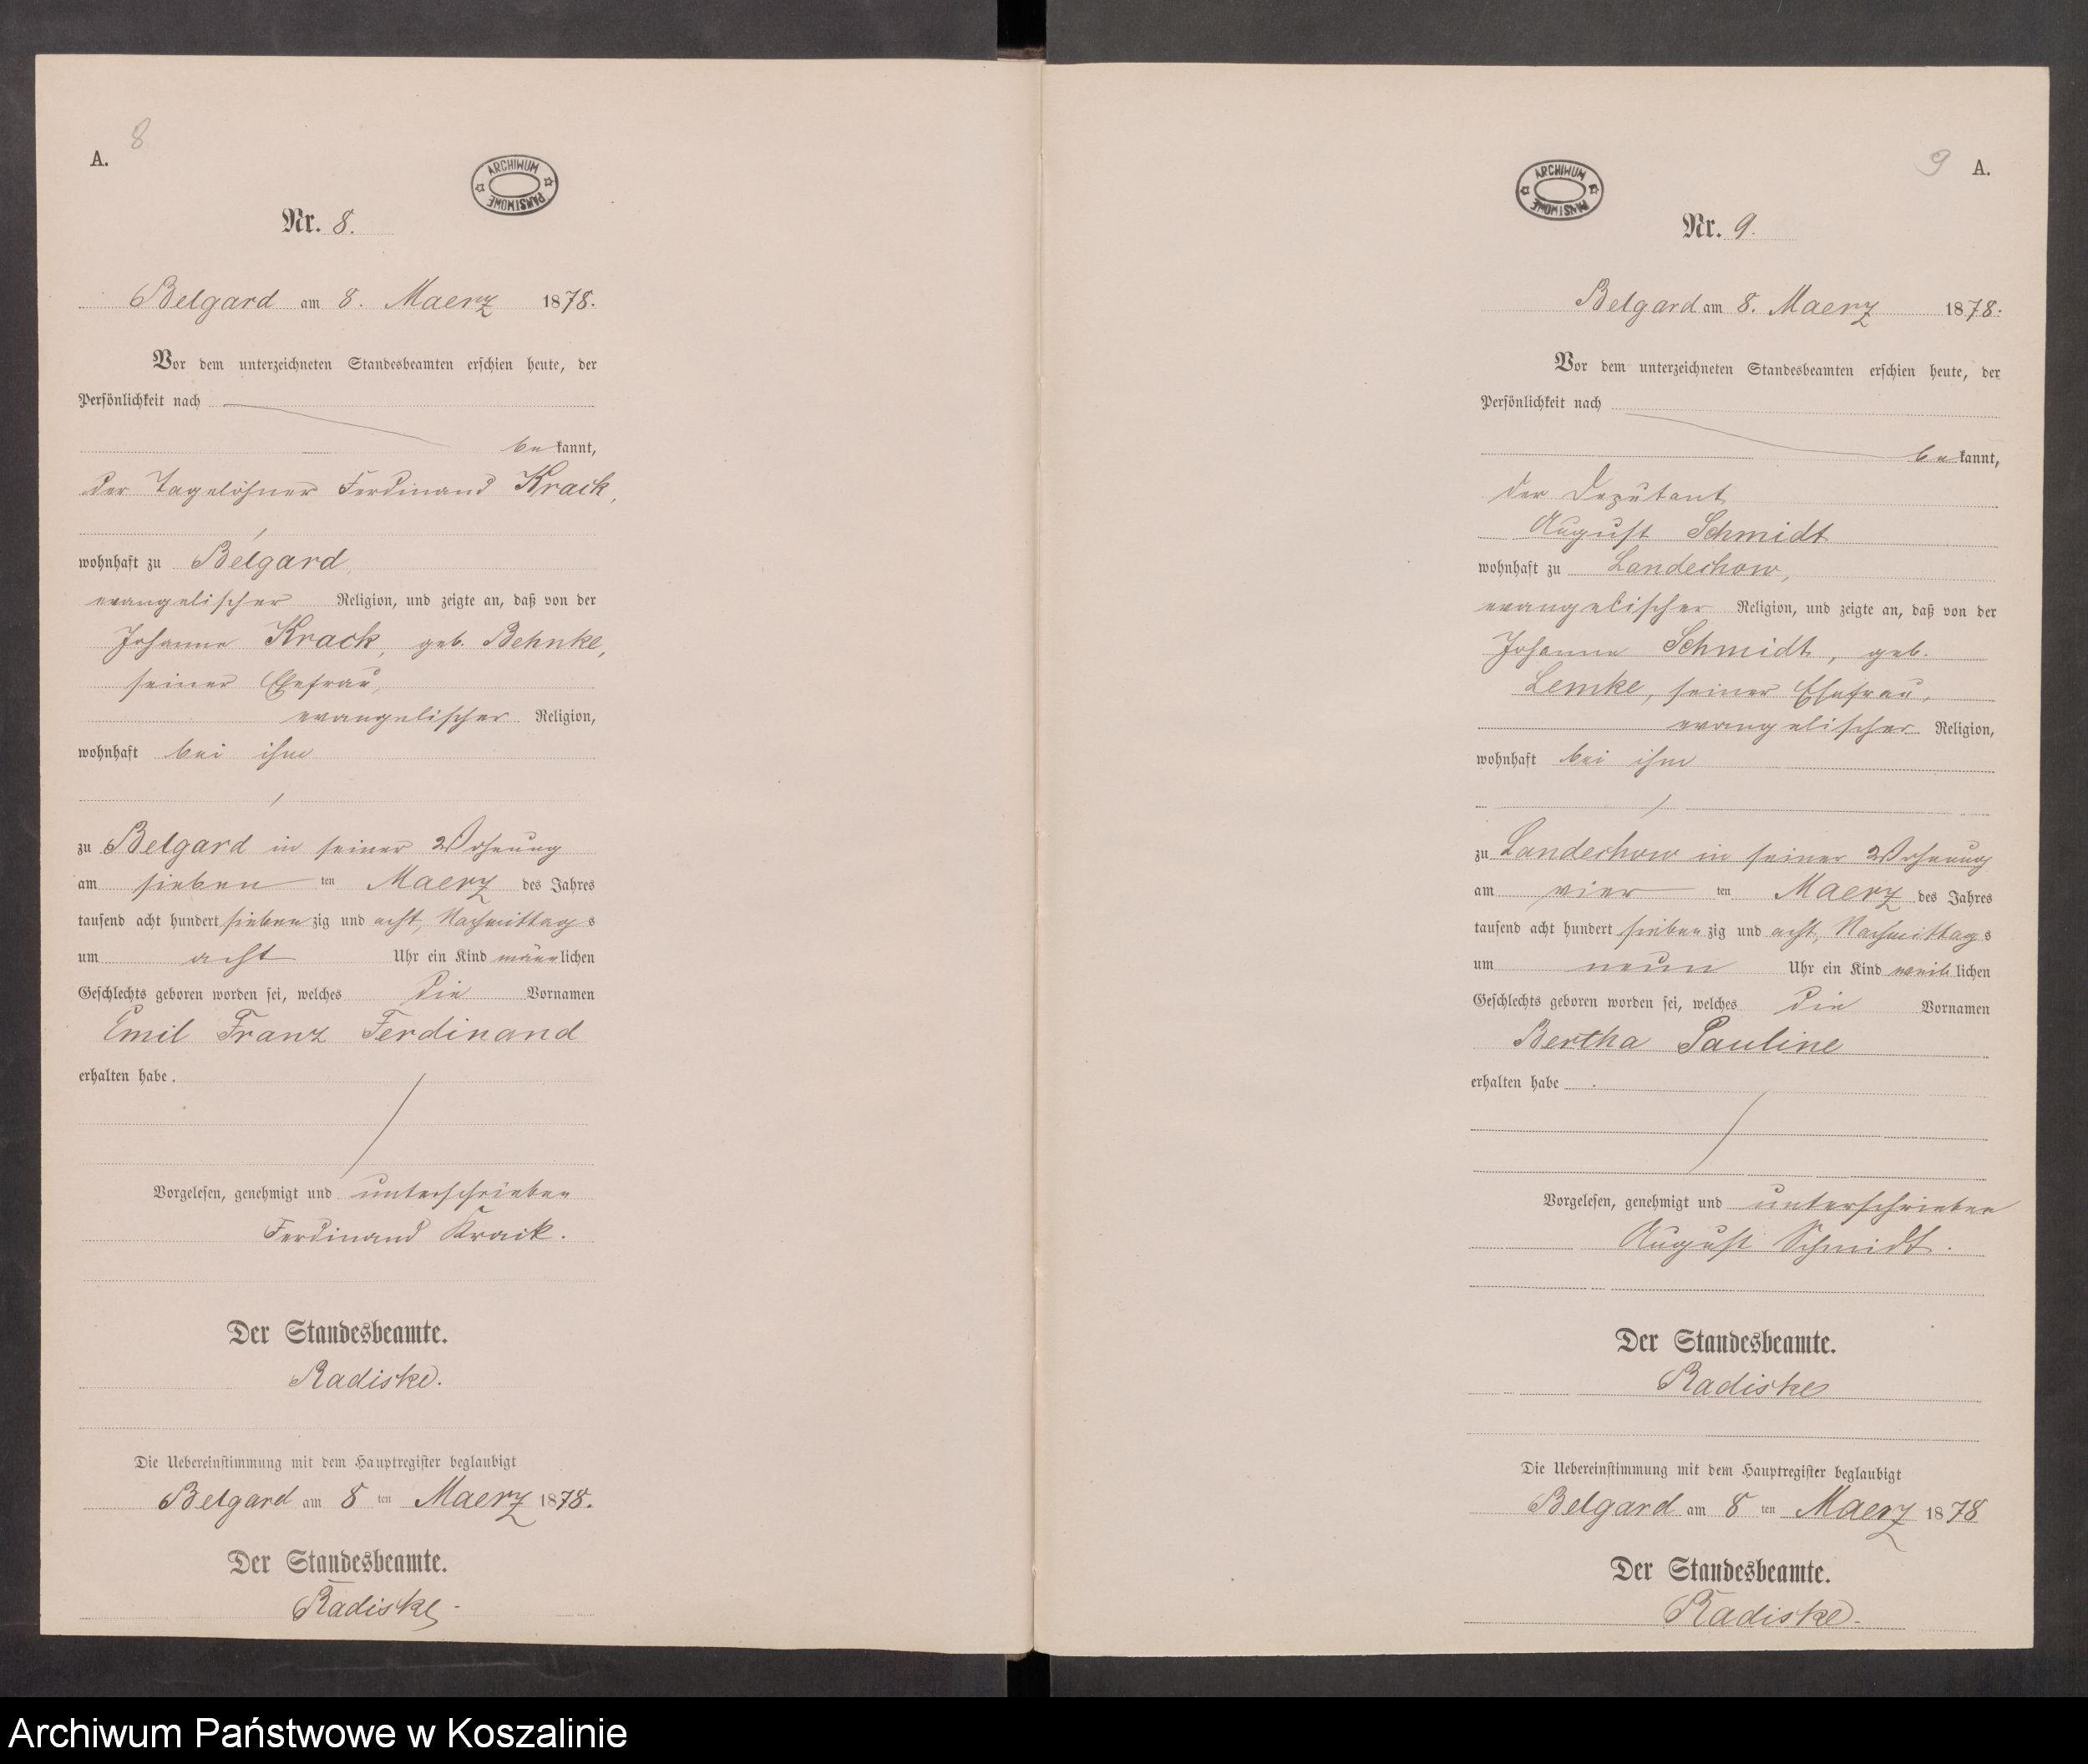 8
A.
ARCHIWUM PAŃSTWOWE
Nr. 8.
Belgard am 8. Maerz 1878.
Vor dem unterzeichneten Standesbeamten erschien heute, der
Persönlichkeit nach
bekannt,
der Tagelöhner Ferdinand Krack,
wohnhaft zu Belgard,
evangelischer Religion, und zeigte an, daß von der
Johanne Krack, geb. Behnke,
seiner Ehefrau,
evangelischer Religion,
wohnhaft bei ihm
zu Belgard in seiner Wohnung
am sieben ten Maerz des Jahres
tausend acht hundert siebenzig und acht, Nachmittags
um acht Uhr ein Kind männlichen
Geschlechts geboren worden sei, welches die Vornamen
Emil Franz Ferdinand
erhalten habe.
Vorgelesen, genehmigt und unterschrieben
Ferdinand Krack.
Der Standesbeamte.
Radiske.
Die Uebereinstimmung mit dem Hauptregister beglaubigt
Belgard am 8 ten Maerz 1878.
Der Standesbeamte.
Radiske.
9 A.
ARCHIWUM PAŃSTWOWE
Nr. 9.
Belgard am 8. Maerz 1878.
Vor dem unterzeichneten Standesbeamten erschien heute, der
Persönlichkeit nach
bekannt,
der Deputant
August Schmidt
wohnhaft zu Landechow,
evangelischer Religion, und zeigte an, daß von der
Johanne Schmidt, geb.
Lemke, seiner Ehefrau,
evangelischer Religion,
wohnhaft bei ihm
zu Landechow in seiner Wohnung
am vier ten Maerz des Jahres
tausend acht hundert siebenzig und acht, Nachmittags
um neun Uhr ein Kind weiblichen
Geschlechts geboren worden sei, welches die Vornamen
Bertha Pauline
erhalten habe.
Vorgelesen, genehmigt und unterschrieben
August Schmidt.
Der Standesbeamte.
Radiske
Die Uebereinstimmung mit dem Hauptregister beglaubigt
Belgard am 8 ten Maerz 1878
Der Standesbeamte.
Radiske.
Archiwum Państwowe w Koszalinie